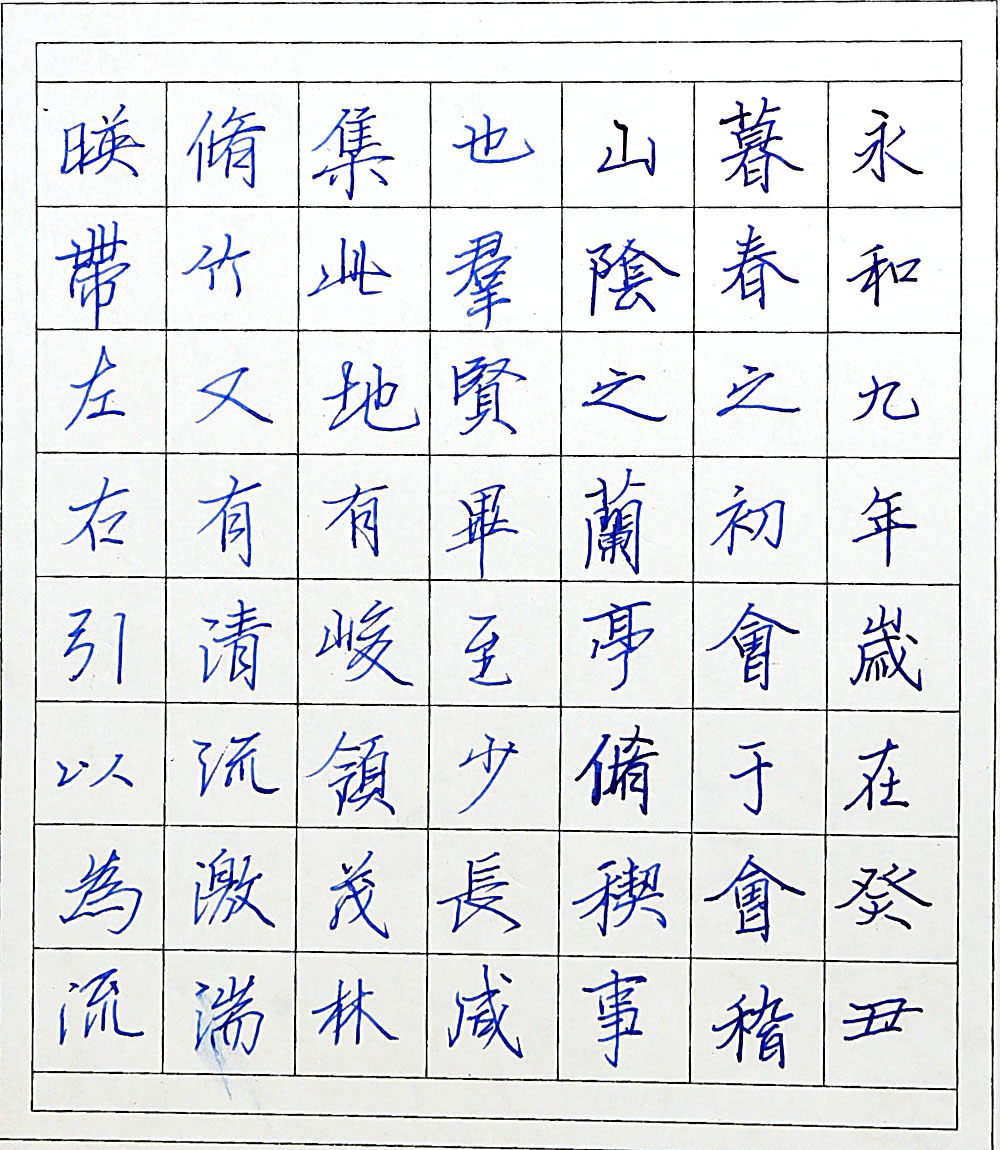 永和九年歲在癸丑
暮春之初會于會稽
山陰之蘭亭脩稧事
也羣賢畢至少長咸
集此地有峻領茂林
脩竹又有清流激湍
暎帶左右引以為流